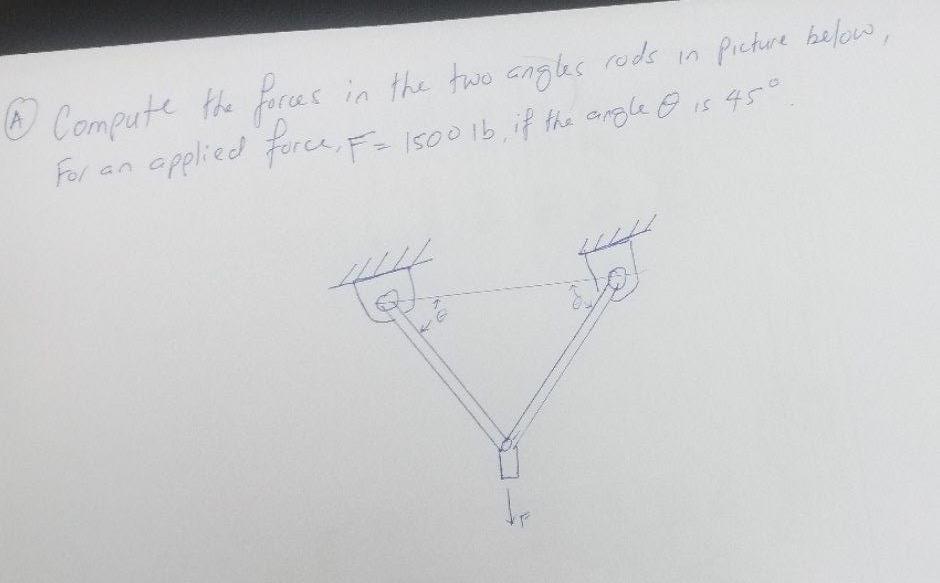 A Compute the forces in the two angles rods in Picture below,
For an applied force, F= 1500 lb, if the angle θ is 45°.
θ θ
F